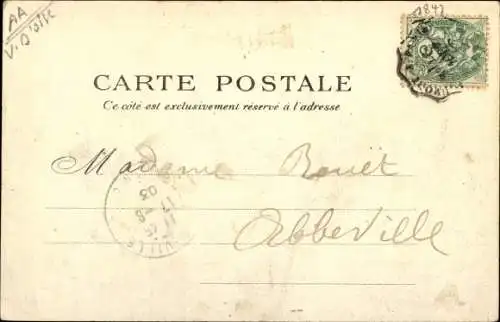 AA
V. D'oise
1842
CARTE POSTALE
Ce côté est exclusivement réservé à l'adresse
Madame Rouët
Abbeville
03
17
VILLE